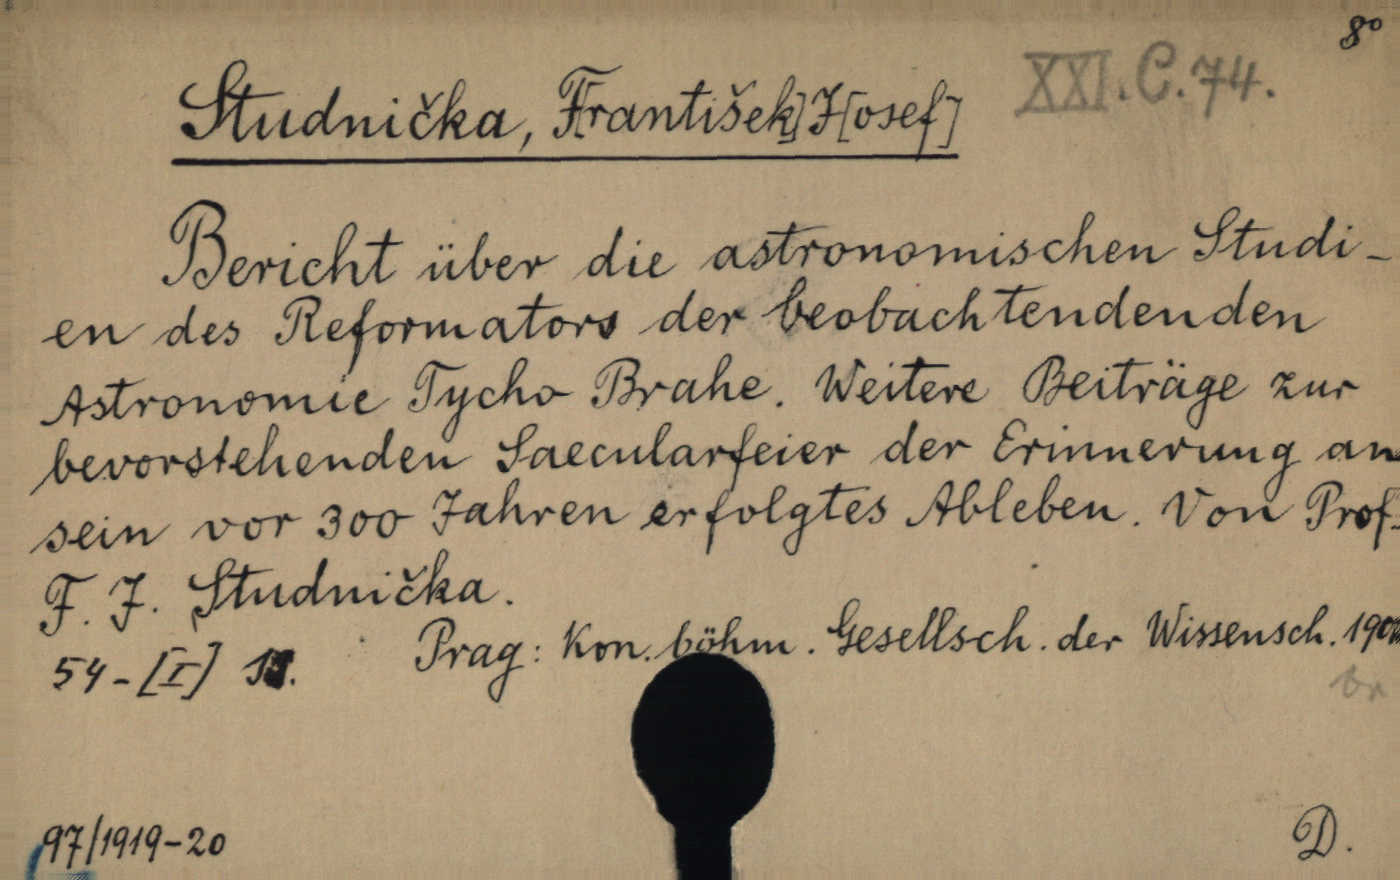 8°
XXI. C. 74.
Studnička, F[rantišek] J[osef]
Bericht über die astronomischen Studi-
en des Reformators der beobachtendenden
Astronomie Tycho Brahe. Weitere Beiträge zur
bevorstehenden Saecularfeier der Erinnerung an
sein vor 300 Jahren erfolgtes Ableben. Von Prof.
F. J. Studnička.
Prag: Kon. böhm. Gesellsch. der Wissensch.
54-[I]
br
97/1919-20
D.